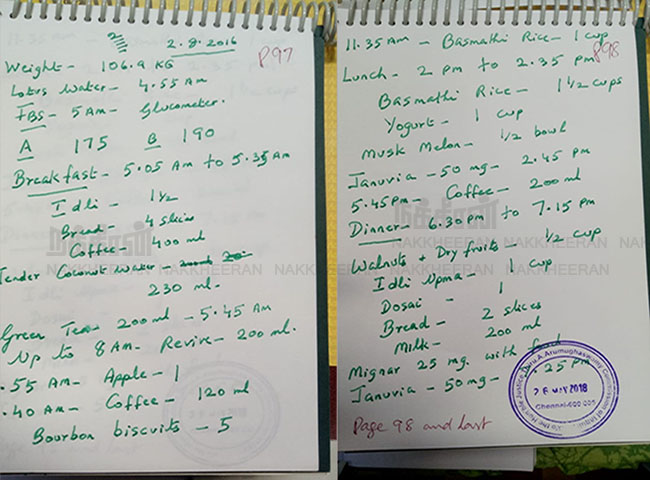 2 2.8.2016
P97
Weight - 106.9 KG
Lotus Water - 4.55 Am
FBS - 5 Am - Glucometer.
A 175 B 190
Breakfast - 5.05 Am to 5.35 Am
Idli - 1½
Bread - 4 slices
Coffee - 400 ml
Tender Coconut water -
230 ml.
Green Tea 200 ml - 5.45 Am
Up to 8 Am. Revive - 200 ml.
.55 Am - Apple - 1
.40 Am - Coffee - 120 ml
Bourbon biscuits - 5
நக்கீரன்
NAKKHEERAN NAKKHEERAN
11.35 Am - Basmathi Rice - 1 cup
P98
Lunch - 2 pm to 2.35 pm
Basmathi Rice - 1½ cups
Yogurt - 1 cup
Musk Melon - ½ bowl
Januvia - 50 mg - 2.45 pm
5.45 pm - Coffee - 200 ml
Dinner - 6.30 pm to 7.15 pm
Walnuts + Dry fruits - ½ cup
Idli Upma - 1 cup
Dosai - 1
Bread - 2 slices
Milk - 200 ml
Mignar 25 mg. with food
Januvia - 50 mg - .25 pm
Page 98 and last
நக்கீரன்
NAKKHEERAN NAKKHEERAN
Hon'ble Justice Thiru.A.Arumughaswamy Commission of Inquiry
2 6 MAY 2018
Chennai-600 005